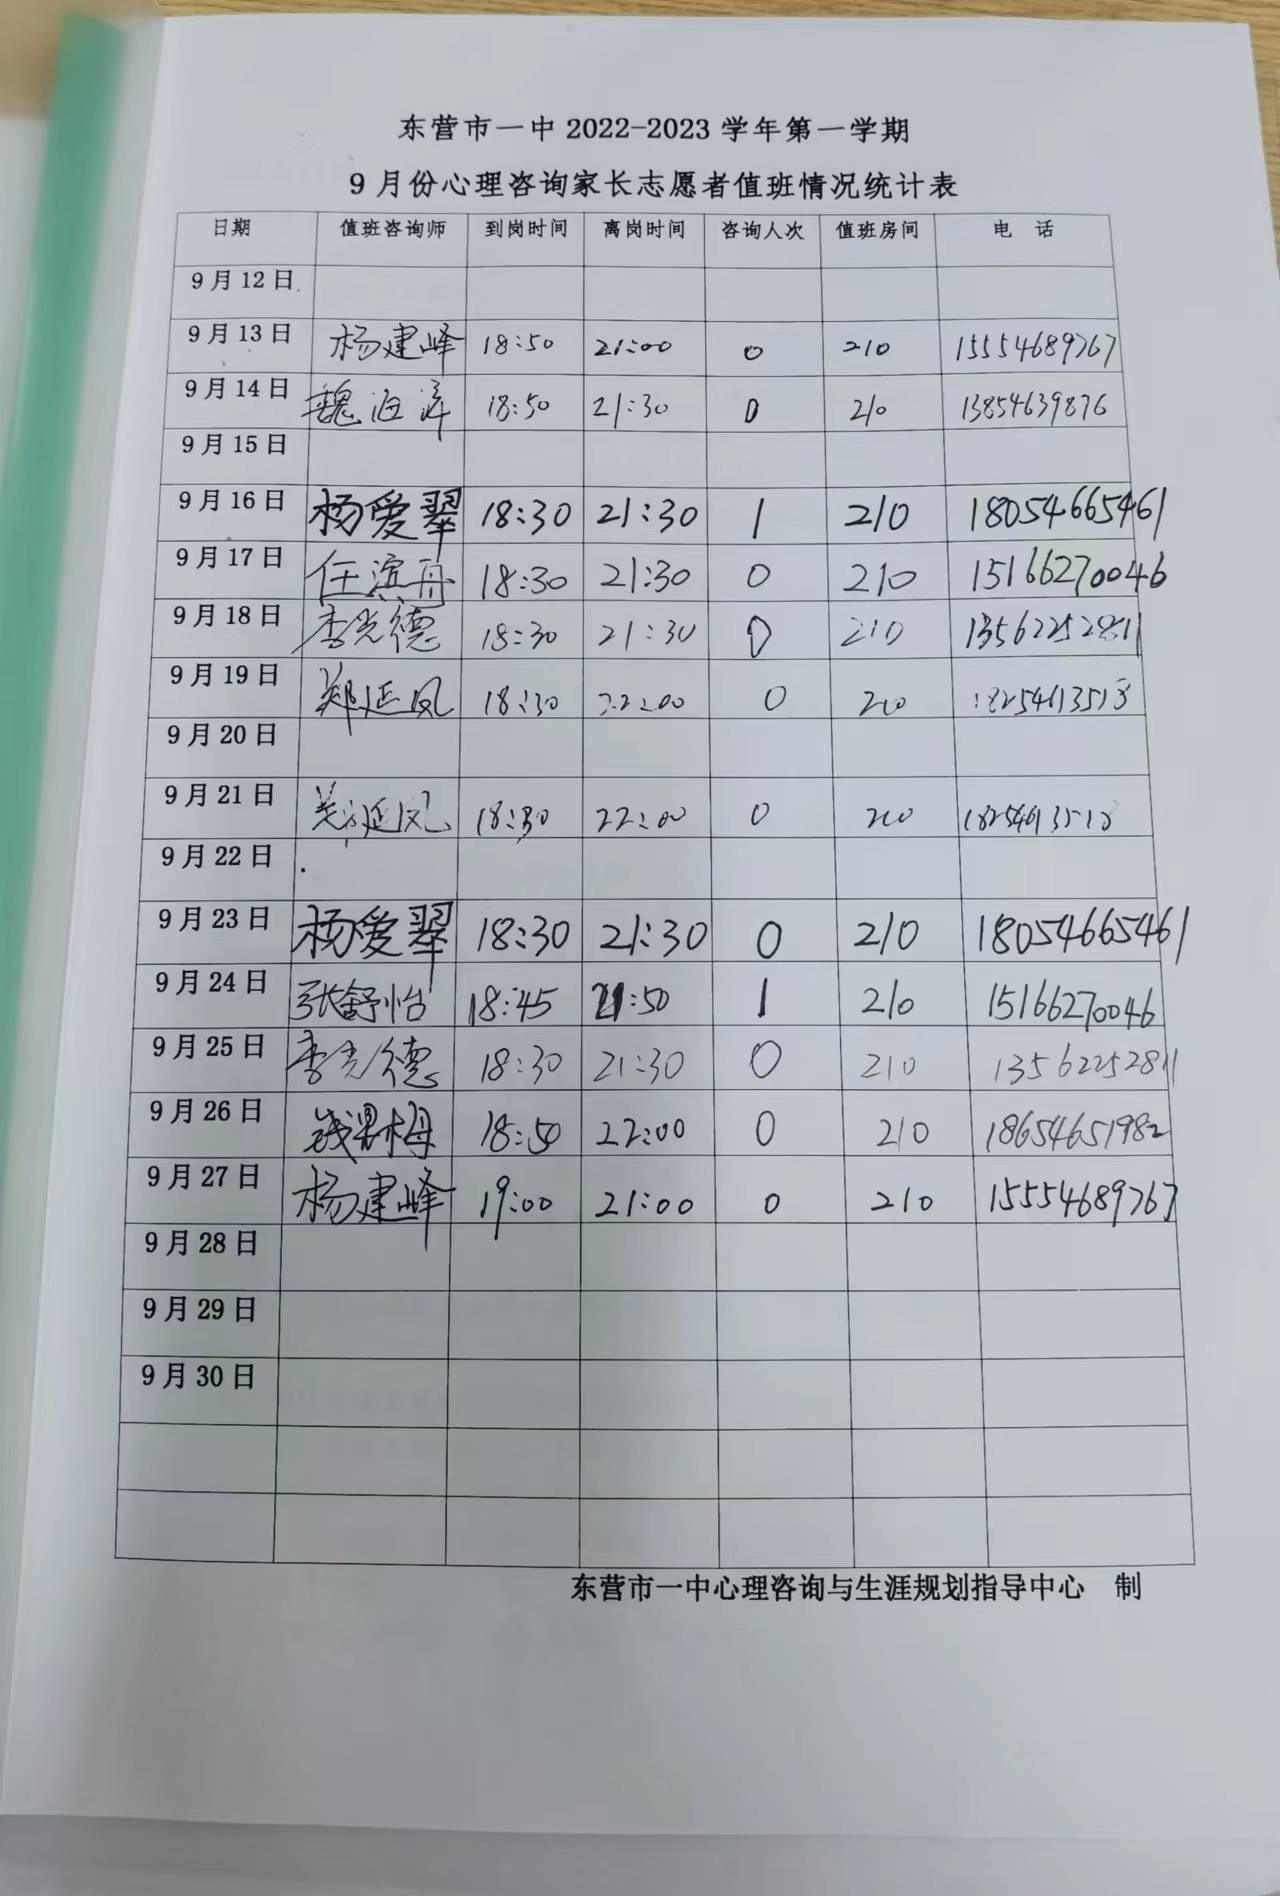 东营市一中 2022-2023 学年第一学期
9 月份心理咨询家长志愿者值班情况统计表
日期 值班咨询师 到岗时间 离岗时间 咨询人次 值班房间 电 话
9 月 12 日
9 月 13 日 杨建峰 18:50 21:00 0 210 15554689767
9 月 14 日 魏海洋 18:50 21:30 0 210 13854639876
9 月 15 日
9 月 16 日 杨爱翠 18:30 21:30 1 210 18054665461
9 月 17 日 任滨舟 18:30 21:30 0 210 15166270046
9 月 18 日 李光德 18:30 21:30 0 210 13562252811
9 月 19 日 郑延凤 18:30 22:00 0 210
9 月 20 日
9 月 21 日 郑延凤 18:30 22:00 0 210
9 月 22 日
9 月 23 日 杨爱翠 18:30 21:30 0 210 18054665461
9 月 24 日 张舒怡 18:45 21:50 1 210 15166270046
9 月 25 日 李光德 18:30 21:30 0 210 13562252811
9 月 26 日 18:50 22:00 0 210 18654651982
9 月 27 日 杨建峰 19:00 21:00 0 210 15554689767
9 月 28 日
9 月 29 日
9 月 30 日
东营市一中心理咨询与生涯规划指导中心 制